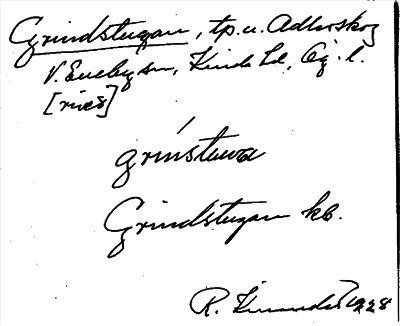 Grindstugan, tp. u. Adlerskog
V. Eneby sn, Kinda hd, Ög. l.
[rives]
grinstuwa
Grindstugan kb.
R. 1928